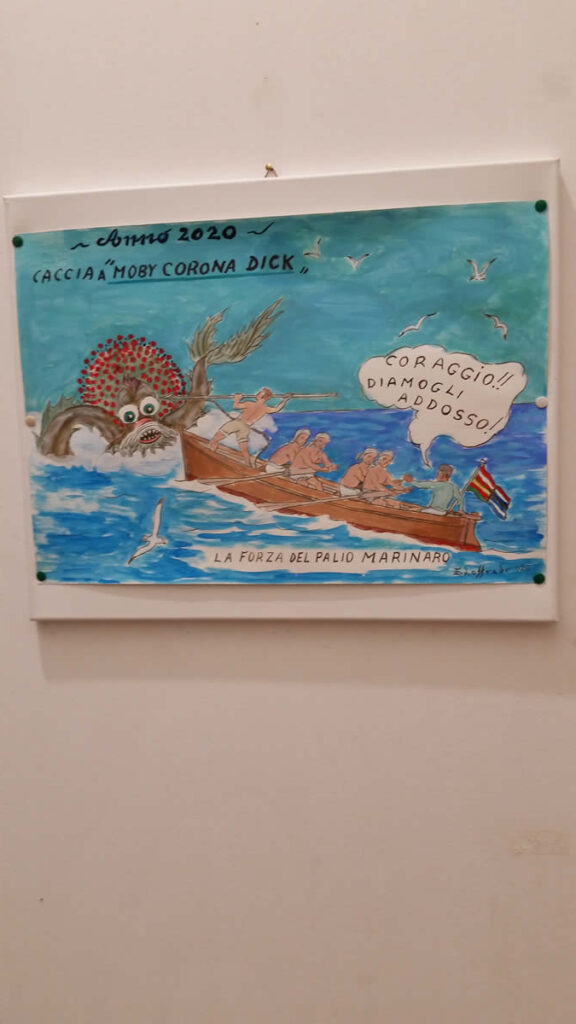 ~ Anno 2020 ~
CACCIA A "MOBY CORONA DICK"
CORAGGIO!!
DIAMOGLI
ADDOSSO!
LA FORZA DEL PALIO MARINARO